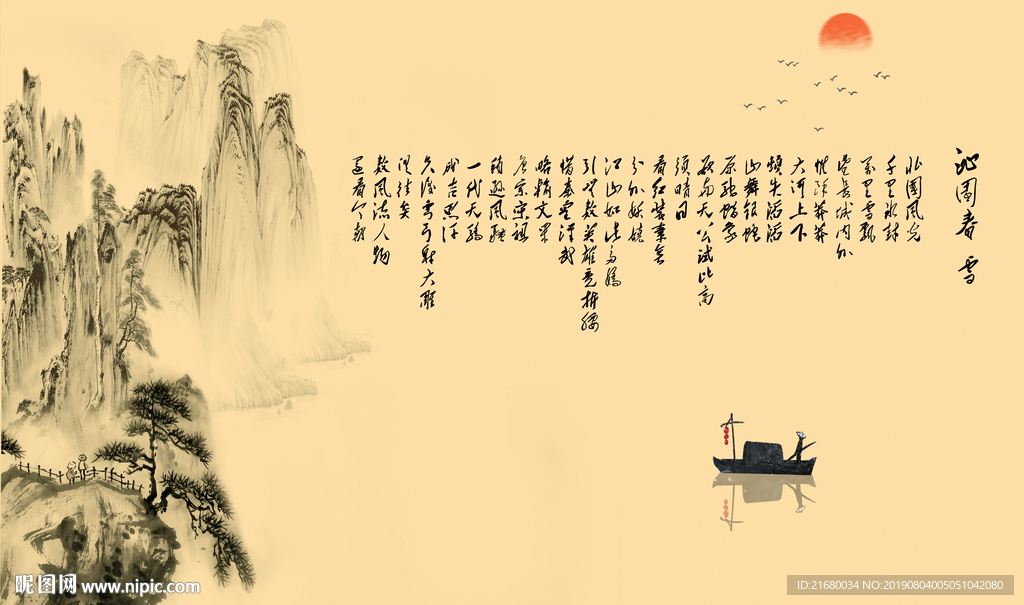 沁园春 雪
北国风光
千里冰封
万里雪飘
望长城内外
惟余莽莽
大河上下
顿失滔滔
山舞银蛇
原驰蜡象
欲与天公试比高
须晴日
看红装素裹
分外妖娆
江山如此多娇
引无数英雄竞折腰
惜秦皇汉武
略输文采
唐宗宋祖
稍逊风骚
一代天骄
成吉思汗
只识弯弓射大雕
俱往矣
数风流人物
还看今朝
昵图网 www.nipic.com
ID:21680034 NO:20190804005051042080